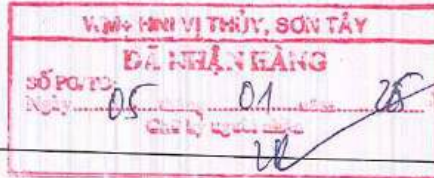 WM+ HNI VỊ THỦY, SƠN TÂY
ĐÃ NHẬN HÀNG
SỐ PO/TO:
Ngày 05 tháng 01 năm 25
Chữ ký người nhận